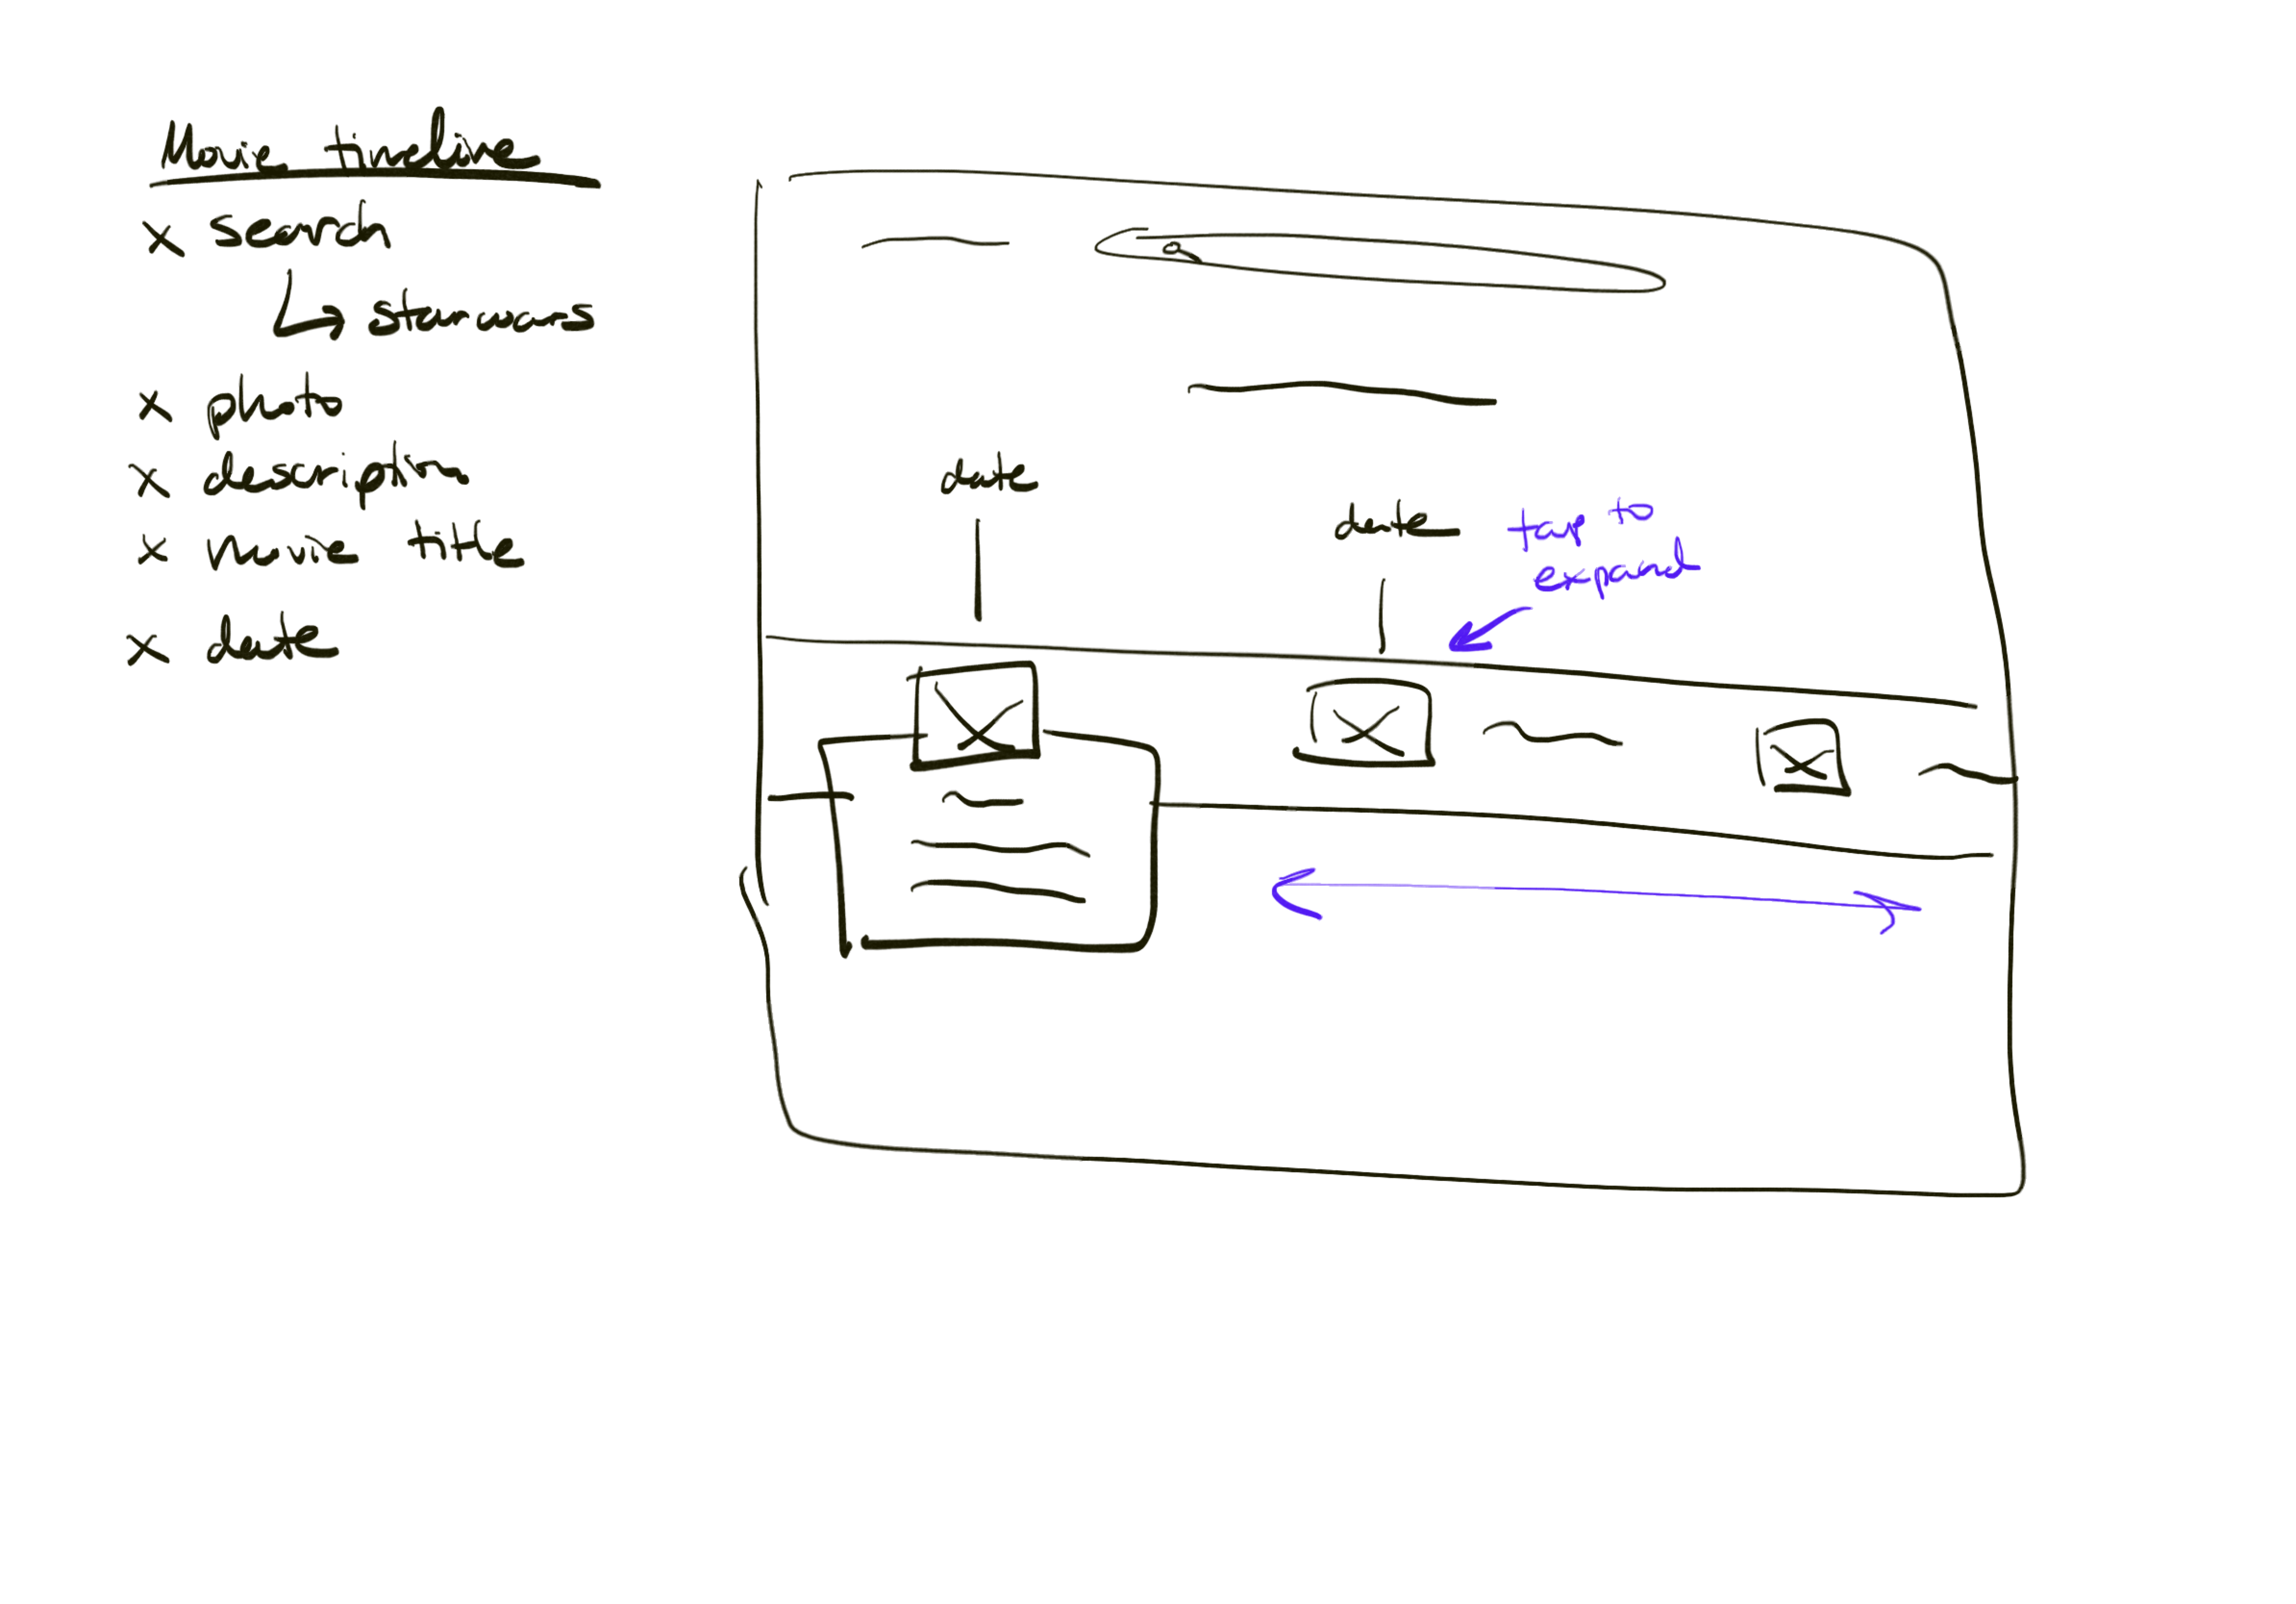 Movie timeline
x search
starwars
x photo
x description
x movie title
x date
date
date
tap to
expand